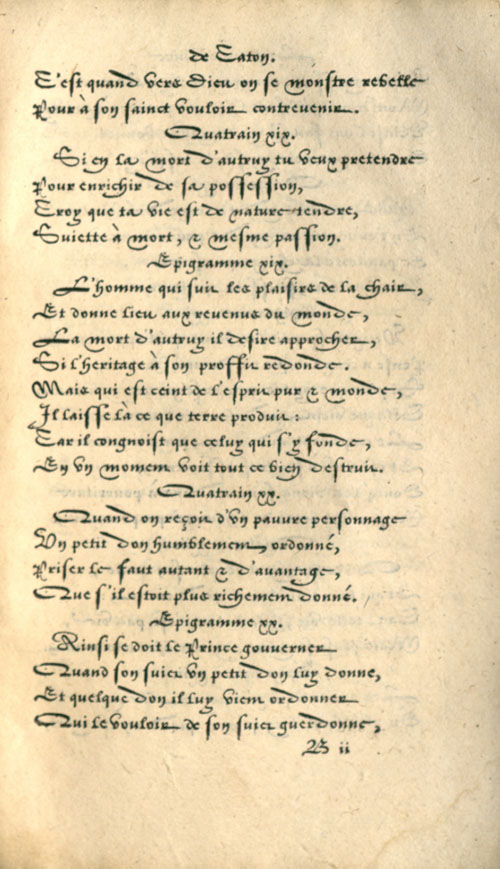 de Caton.
C'est quand vers Dieu on se monstre rebelle
Pour à son sainct vouloir contrevenir.
Quatrain xix.
Si en la mort d'autruy tu veux pretendre
Pour enrichir de sa possession,
Croy que ta vie est de nature tendre,
Suiette à mort, & mesme passion.
Epigramme xix.
L'homme qui suit les plaisirs de la chair,
Et donne lieu aux revenus du monde,
La mort d'autruy il desire approcher,
Si l'heritage à son proffit redonde.
Mais qui est ceint de l'esprit pur & monde,
Il laisse là ce que terre produit:
Car il congnoist que celuy qui s'y fonde,
En vn moment voit tout ce bien destruit.
Quatrain xx.
Quand on reçoit d'vn pauvre personnage
Vn petit don humblement ordonné,
Priser le faut autant & d'avantage,
Que s'il estoit plus richement donné.
Epigramme xx.
Ainsi se doit le Prince gouverner
Quand son suiet vn petit don luy donne,
Et quelque don il luy vient ordonner
Qui le vouloir de son suiet guerdonne,
B ii